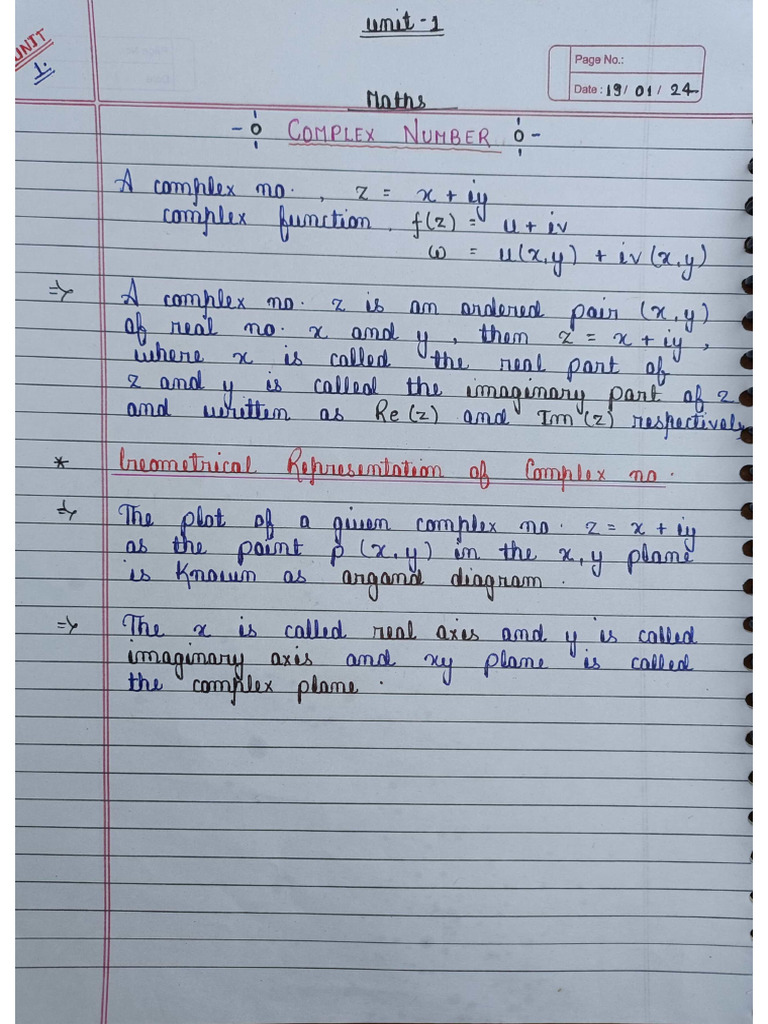 Unit-1
UNIT
1.
Page No.:
Date: 19/ 01 / 24
Maths
COMPLEX NUMBER
A complex no., z = x + iy
complex function, f(z) = u + iv
ω = u(x,y) + iv(x,y)
⇒ A complex no. z is an ordered pair (x,y)
of real no. x and y, then z = x + iy,
where x is called the real part of
z and y is called the imaginary part of z
and written as Re(z) and Im(z) respectively
* Geometrical Representation of Complex no.
⇒ The plot of a given complex no. z = x + iy
as the point p(x,y) in the x,y plane
is known as argand diagram.
⇒ The x is called real axis and y is called
imaginary axis and xy plane is called
the complex plane.